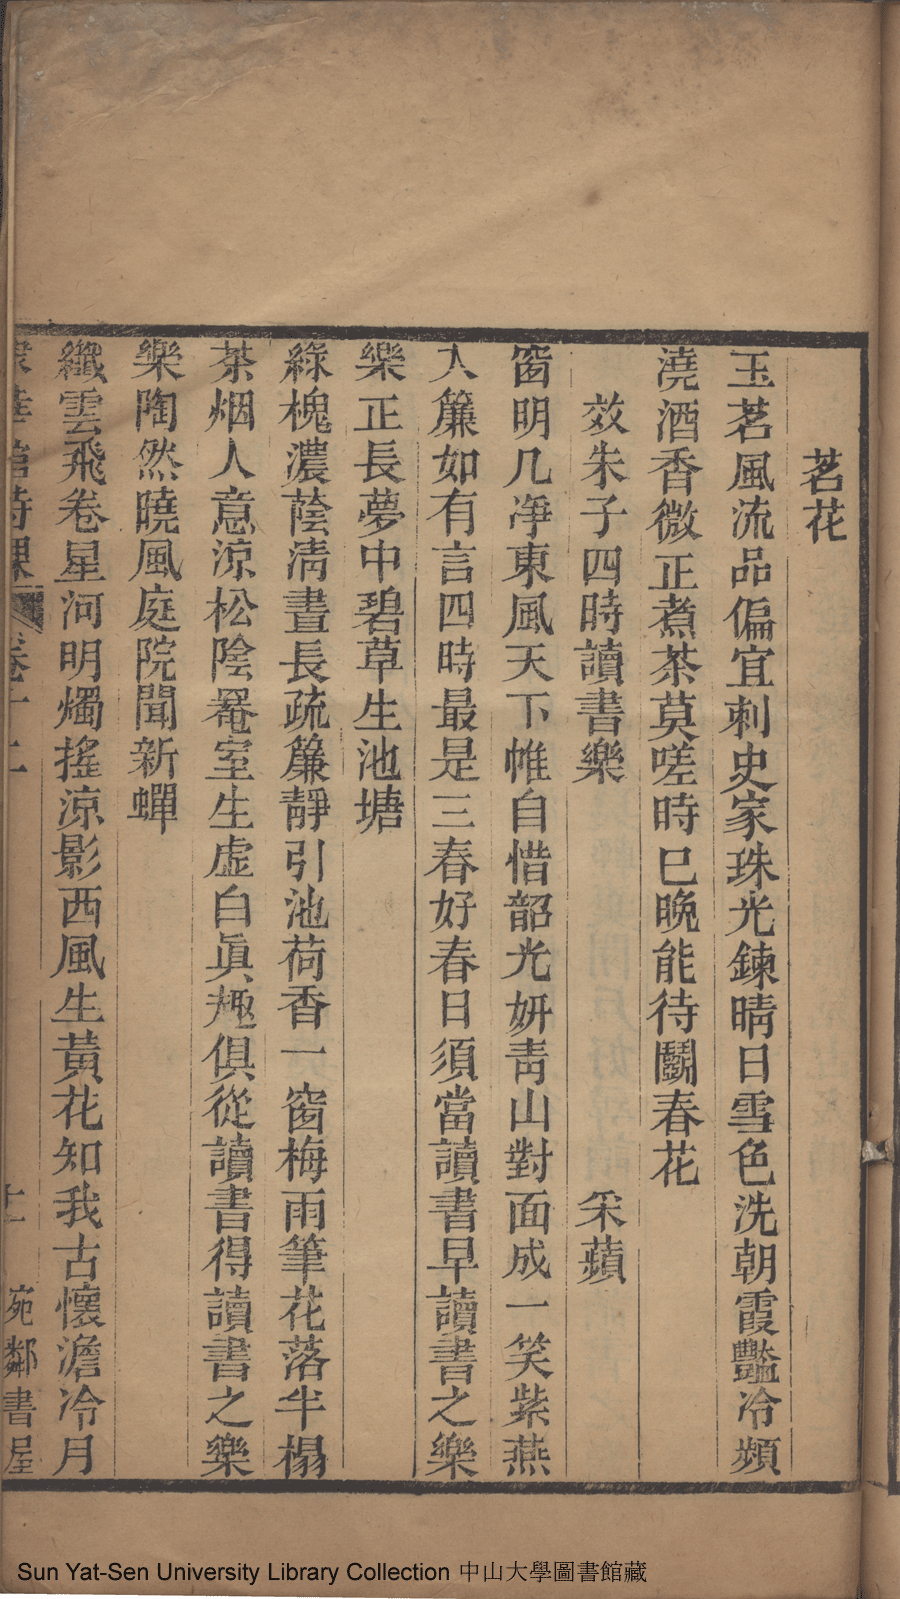 茗花
玉茗風流品偏宜刺史家珠光鍊晴日雪色洗朝霞豔冷頻
澆酒香微正煮茶莫嗟時已晚能待鬭春花
效朱子四時讀書樂 采蘋
窗明几凈東風天下帷自惜韶光妍靑山對面成一笑紫燕
入簾如有言四時最是三春好春日須當讀書早讀書之樂
樂正長夢中碧草生池塘
綠槐濃蔭淸晝長疏簾靜引池荷香一窗梅雨筆花落半榻
茶烟人意涼松陰罨室生虛白眞趣俱從讀書得讀書之樂
樂陶然曉風庭院聞新蟬
纖雲飛卷星河明燭搖涼影西風生黃花知我古懷澹冷月
館詩課 卷十二 十一 宛鄰書屋
Sun Yat-Sen University Library Collection 中山大學圖書館藏